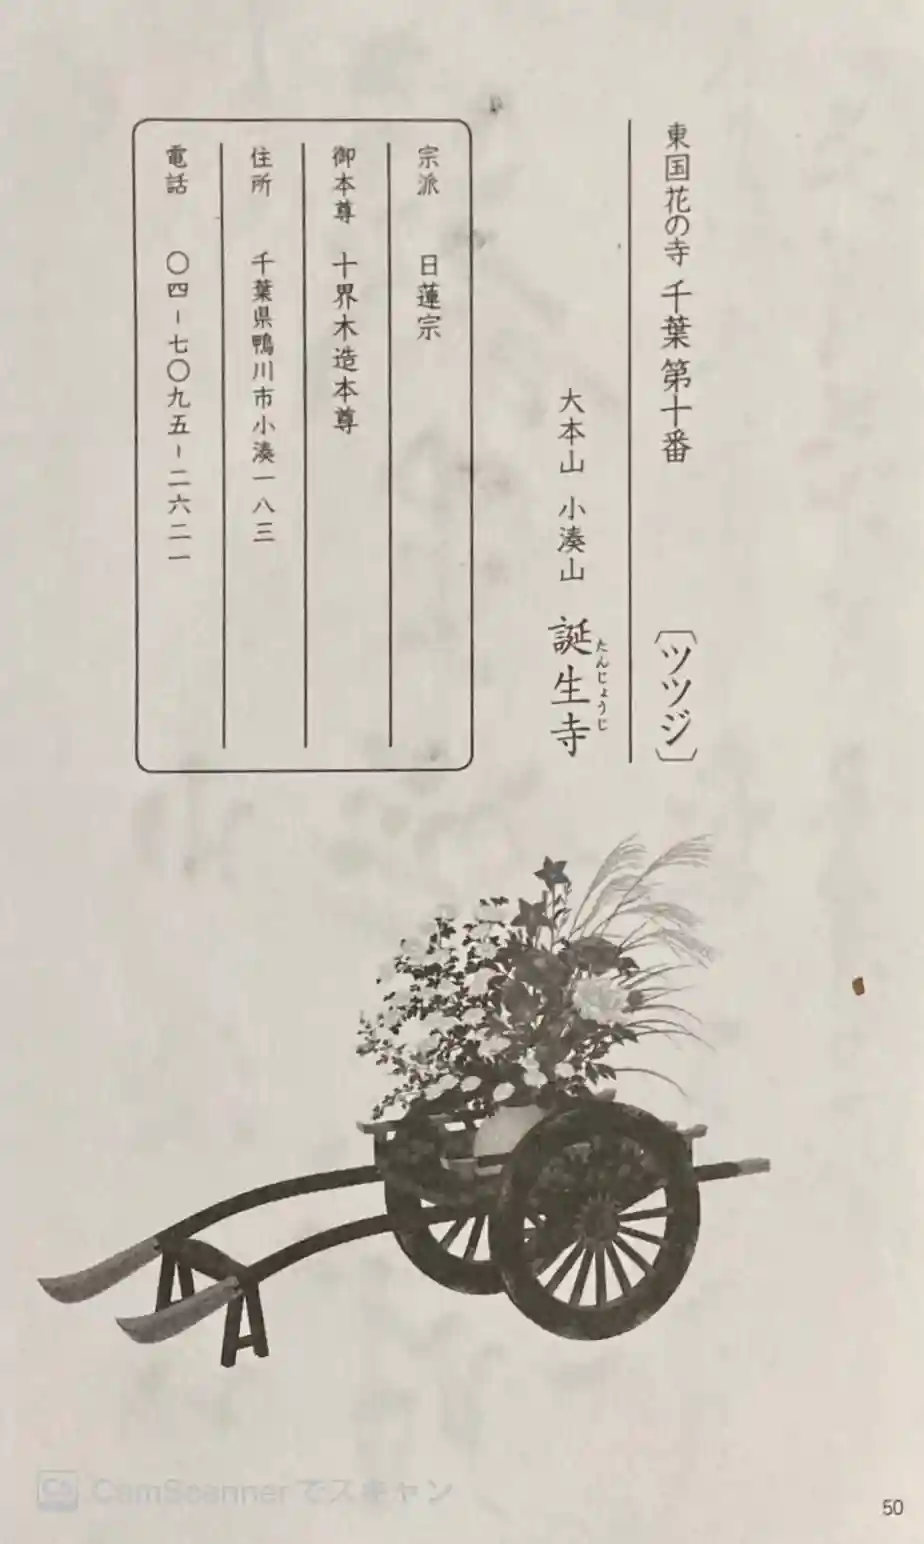 東国花の寺 千葉 第十番 〔ツツジ〕
大本山 小湊山 誕生寺
たんじょうじ
宗派 日蓮宗
御本尊 十界木造本尊
住所 千葉県鴨川市小湊一八三
電話 〇四-七〇九五-二六二一
CS CamScanner でスキャン
50